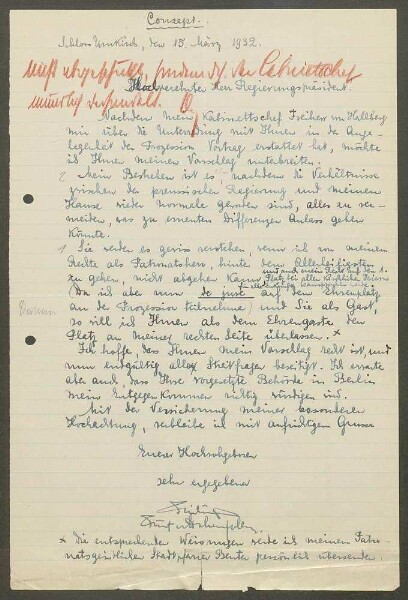 Consept.
Schloss Umkirch, den 15. März 1932.
nicht abgeschickt, sondern d. den Cabinettschef
mündlich
Hochverehrter Herr Regierungspräsident.
Nachdem mein Kabinettschef Freiherr von Hallberg
mir über die Unterredung mit Ihnen in der Ange-
legenheit der Prozession Vortrag erstattet hat, möchte
ich Ihnen meinen Vorschlag unterbreiten.
2 Mein Bestreben ist es, nachdem die Verhältnisse
zwischen der preussischen Regierung und meinem
Hause wieder normale geworden sind, alles zu ver-
meiden, was zu erneuten Differenzen Anlass geben
könnte.
1 Sie werden es gewiss verstehen, wenn ich von meinem
Rechte als Patronatsherr, hinter dem Allerheiligsten
zu gehen, nicht abgehen kann
und auch mein Recht auf den 1.
Platz bei allen
Da ich aber nun de jure auf den Ehrenplatz
an der Prozession teilnehme und Sie als Gast,
so will ich Ihnen als dem Ehrengaste den
Platz an meiner rechten Seite überlassen. x
Ich hoffe, dass Ihnen mein Vorschlag recht ist, und
nun endgültig alle Streitfragen beseitigt. Ich erwarte
aber auch, dass Ihre vorgesetzte Behörde in Berlin
mein Entgegenkommen richtig würdigen wird.
Mit der Versicherung meiner besonderen
Hochachtung, verbleibe ich mit aufrichtigem Grusse
Eurer Hochwohlgeboren
sehr ergebener
Fürst von Hohenzollern
x Die entsprechenden Weisungen werde ich meinem Patro-
natsgeistlichen Stadtpfarrer Beuter persönlich übersenden.